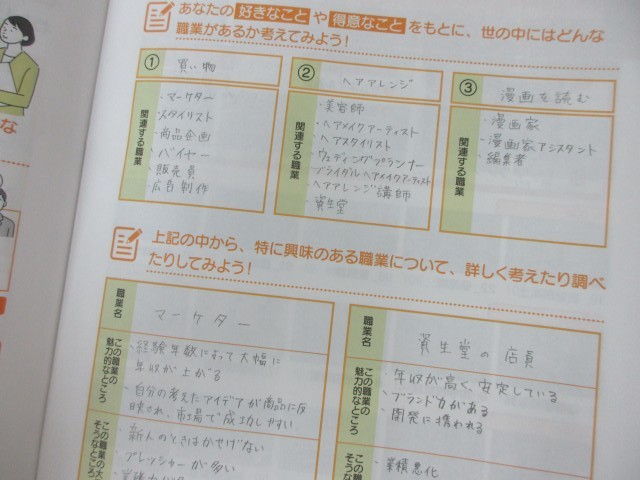 あなたの 好きなこと や 得意なこと をもとに、世の中にはどんな
職業があるか考えてみよう!
① 買い物
関連する職業
・マーケター
スタイリスト
・商品企画
・バイヤー
・販売員
・広告制作
② ヘアアレンジ
関連する職業
・美容師
・ヘアメイクアーティスト
・ヘアスタイリスト
・ウェディングプランナー
ブライダルヘアメイクアーティスト
・ヘアアレンジ講師
・資生堂
③ 漫画を読む
関連する職業
・漫画家
・漫画家アシスタント
・編集者
上記の中から、特に興味のある職業について、詳しく考えたり調べ
たりしてみよう!
職業名
マーケター
この職業の
魅力的なところ
・経験年数によって大幅に
年収が上がる
・自分の考えたアイデアが商品に反
映され、市場で成功しやすい
この職業の大
そうなところ
・新人のときはかせげない
・プレッシャーが多い
職業名
資生堂の店員
この職業の
魅力的なところ
・年収が高く、安定している
・ブランド力がある
・開発に携われる
この職業の
そうな
・業績悪化
な